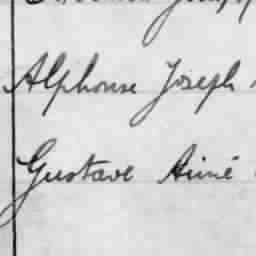 Alphonse Joseph
Gustave Aimé